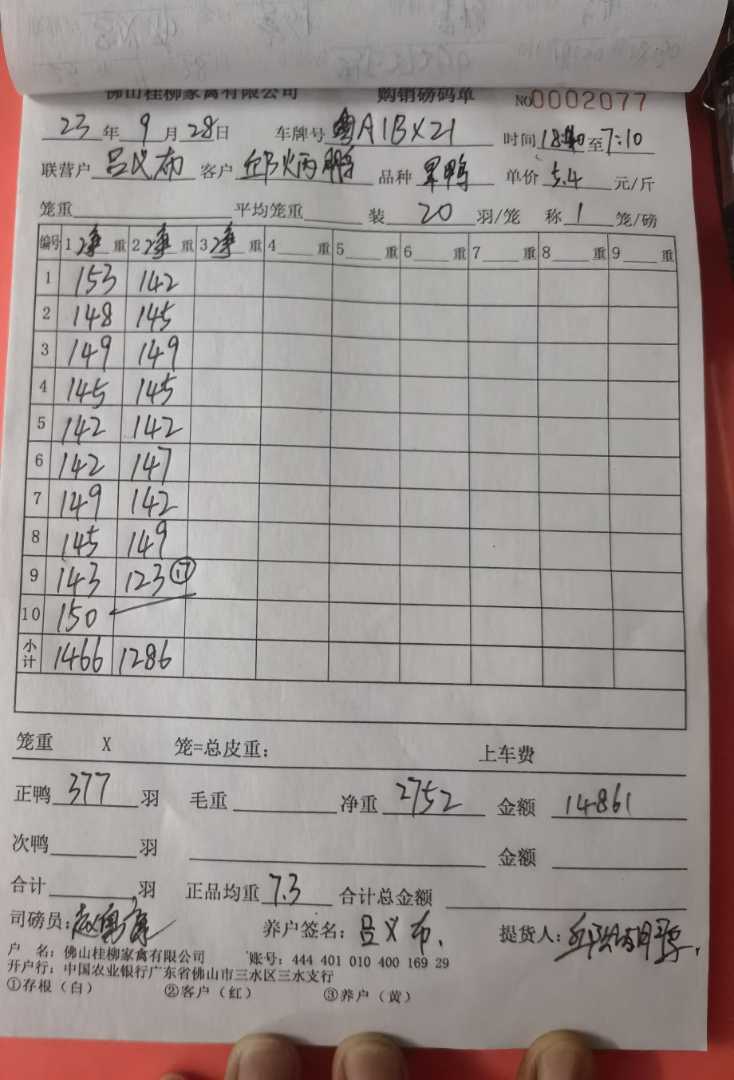 佛山桂柳家禽有限公司 购销磅码单 NO0002077
23年9月28日 车牌号粤A1BX21 时间18:40至7:10
联营户吕义布 客户邱炳鹏 品种黑鸭 单价5.4元/斤
笼重 平均笼重 装20羽/笼 称1笼/磅
编号 1净重 2净重 3净重 4重 5重 6重 7重 8重 9重
1 153 142
2 148 145
3 149 149
4 145 145
5 142 142
6 142 147
7 149 142
8 145 149
9 143 123 ⑰
10 150
小计 1466 1286
笼重 X 笼=总皮重: 上车费
正鸭377羽 毛重 净重2752 金额14861
次鸭羽 金额
合计羽 正品均重7.3 合计总金额
司磅员: 养户签名:吕义布. 提货人:邱炳鹏
户 名:佛山桂柳家禽有限公司 账号:444 401 010 400 169 29
开户行:中国农业银行广东省佛山市三水区三水支行
①存根(白) ②客户(红) ③养户(黄)